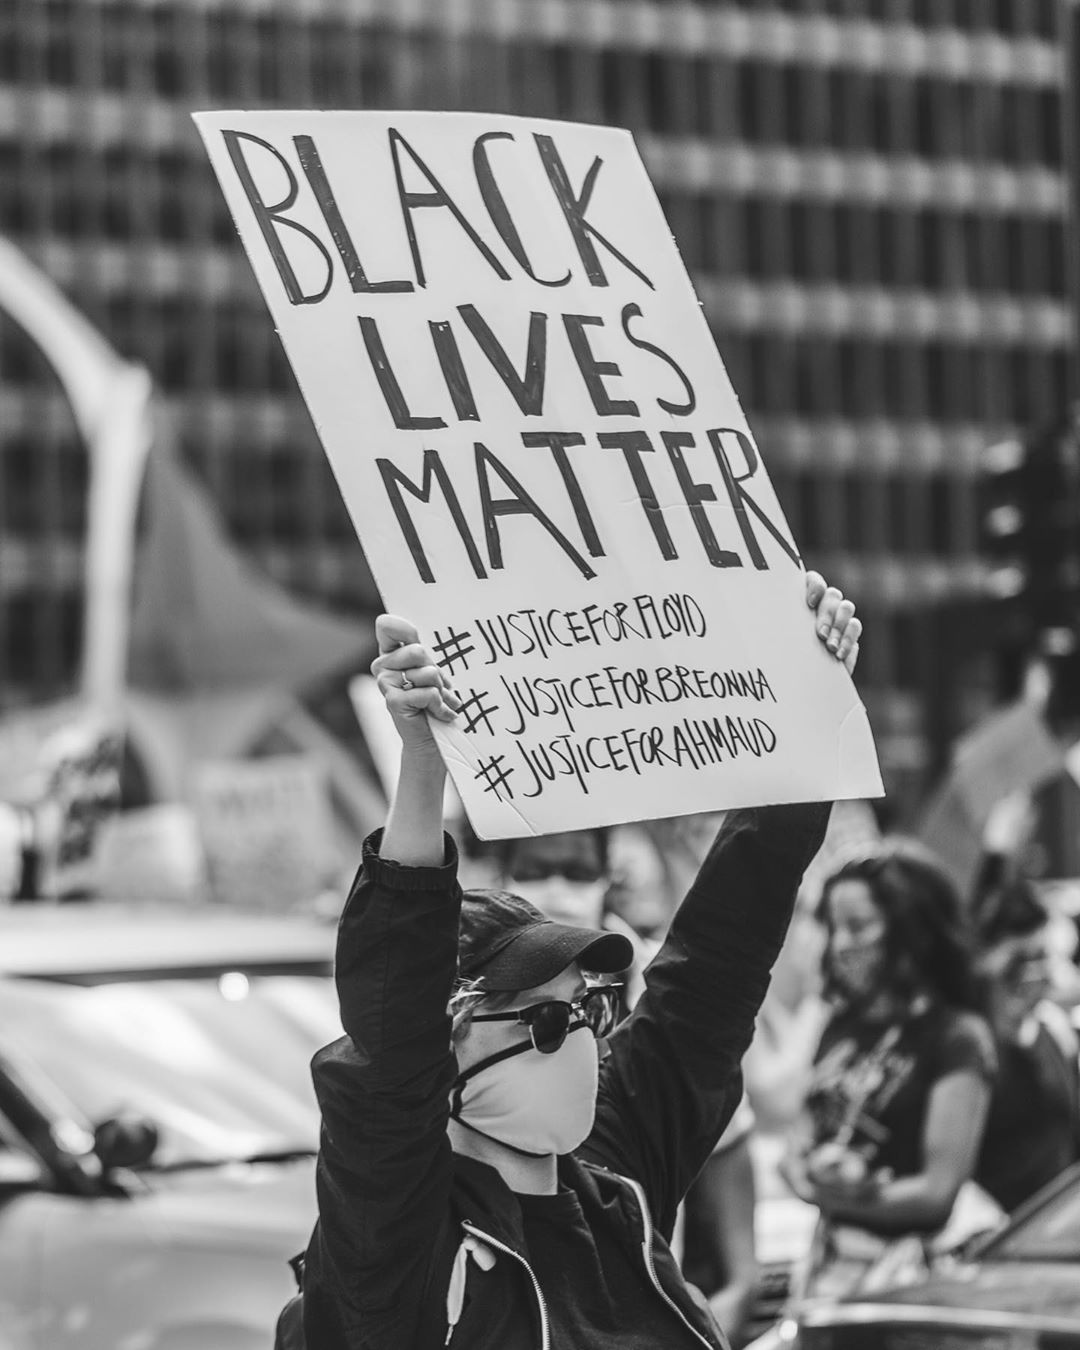 BLACK
LIVES
MATTER
#JUSTICEFORFLOYD
#JUSTICEFORBREONNA
#JUSTICEFORAHMAUD